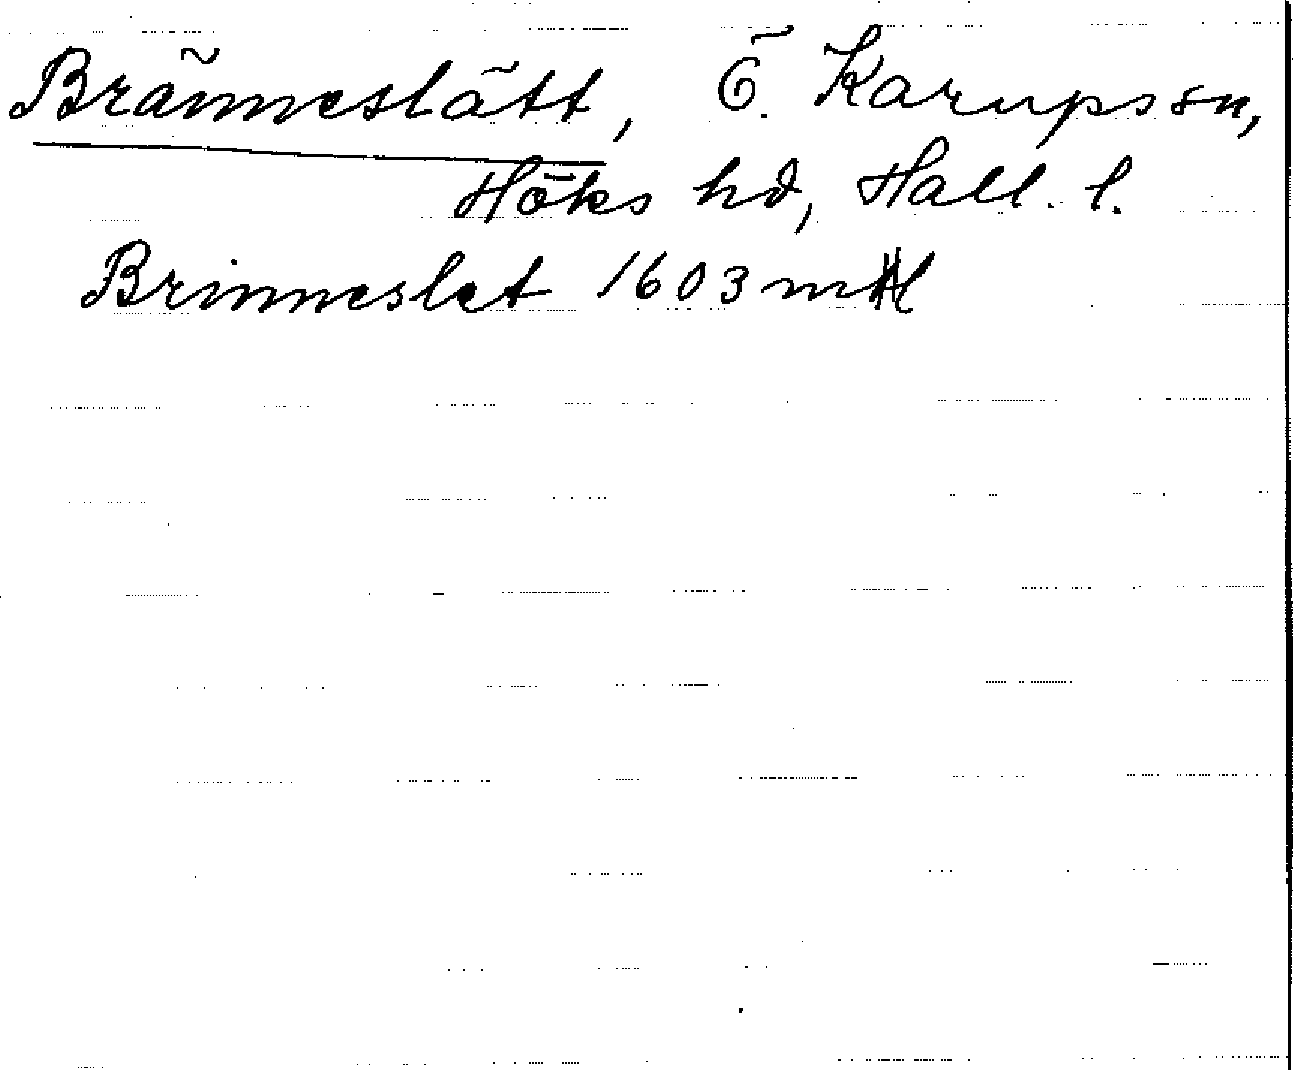 Bränneslätt, Ö. Karups sn,
Höks hd, Hall. l.
Brinneslet 1603